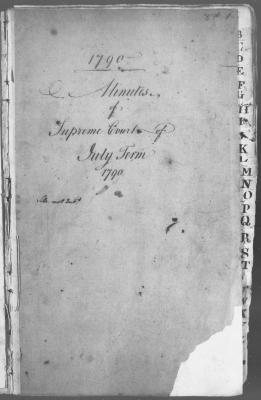 1790
Minutes
of
Supreme Court of
July Term
1790
B
D
E
F
G
H
K
L
M
N
O
P
Q
R
S
T